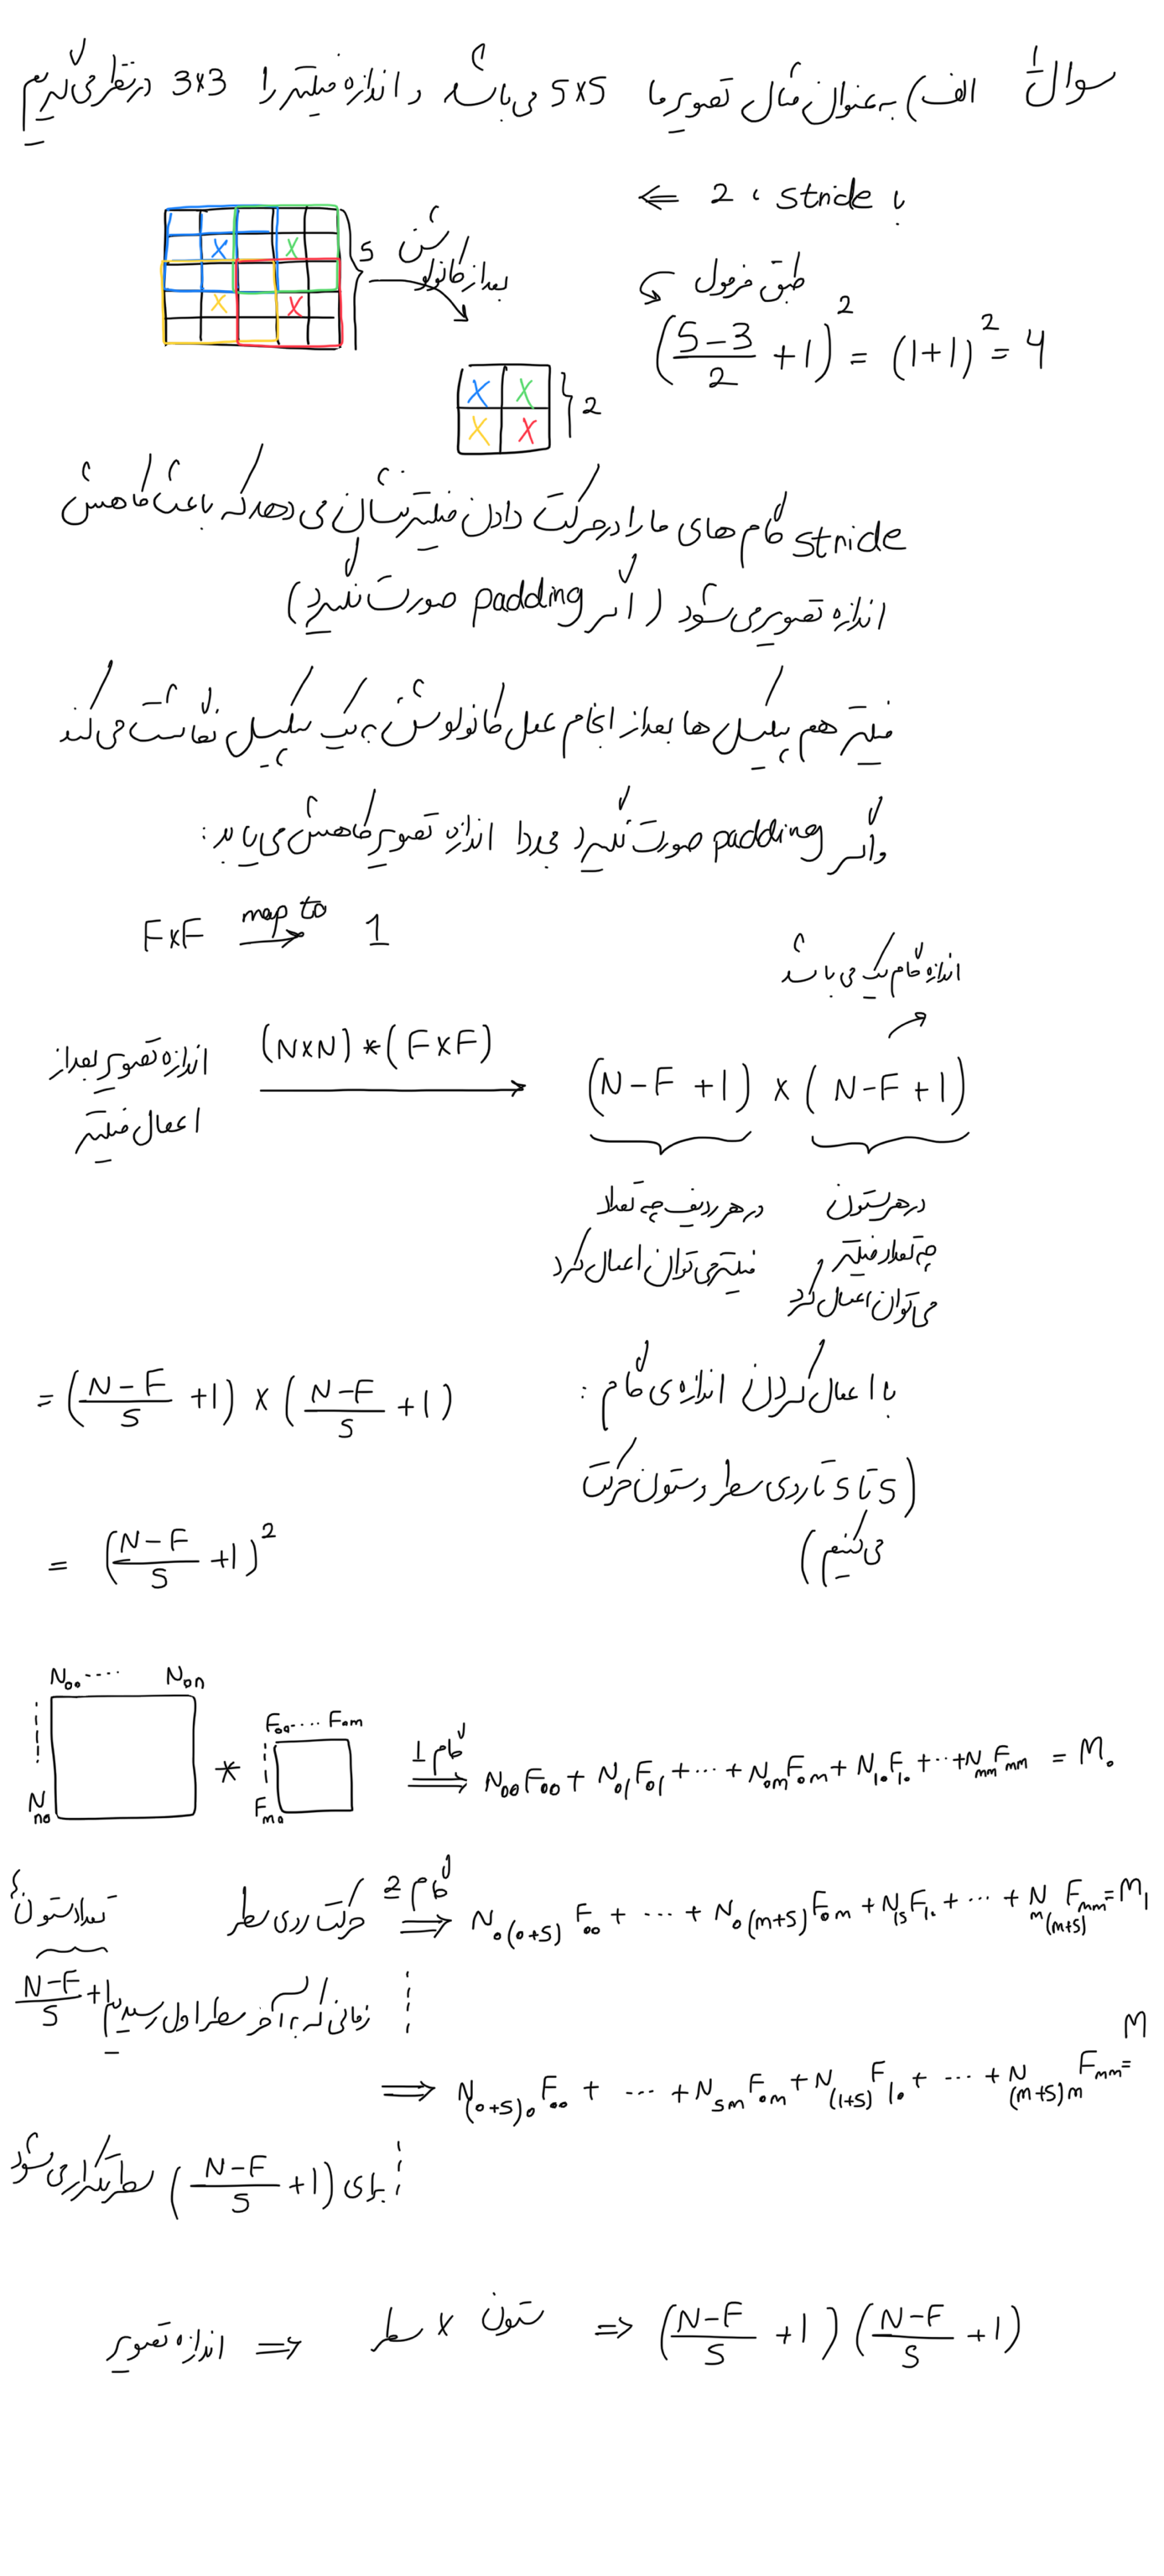 سوال ۱ الف) به عنوان مثال تصویر ما 5x5 می باشد و اندازه فیلتر را 3x3 در نظر می گیریم
با stride ، 2 ⇐
طبق فرمول
((5-3)/2 + 1)^2 = (1+1)^2 = 4
X X 5
X X
بعد از کانولوشن
X X 2
X X
stride گام های ما را در حرکت دادن فیلتر نشان می دهد که باعث کاهش
اندازه تصویر می شود (اگر padding صورت نگیرد)
فیلتر هم پیکسل ها بعد از انجام عمل کانولوشن به یک پیکسل نگاشت می کند
و اگر padding صورت نگیرد مجددا اندازه تصویر کاهش می یابد:
FxF map to → 1
اندازه گام یک می باشد
اندازه تصویر بعد از اعمال فیلتر (NxN)*(FxF) → (N-F+1) x (N-F+1)
در هر ردیف چه تعداد فیلتر می توان اعمال کرد
در هر ستون چه تعداد فیلتر می توان اعمال کرد
با اعمال کردن اندازه ی گام :
= ((N-F)/S + 1) x ((N-F)/S + 1)
(S تا S تا روی سطر و ستون حرکت
می کنیم)
= ((N-F)/S + 1)^2
N00 .... N0n
Nn0
*
F00 .... F0m
Fm0
گام 1 ⇒ N00F00 + N01F01 + ... + N0mF0m + N10F10 + ... + NmmFmm = M0
حرکت روی سطر گام 2 ⇒ N0(0+S) F00 + ... + N0(m+S) F0m + N1S F10 + ... + Nm(m+S) Fmm = M1
تعداد ستون
(N-F)/S + 1
زمانی که به آخر سطر اول رسیدیم
⇒ N(0+S)0 F00 + ... + NSm F0m + N(1+S) F10 + ... + N(m+S)m Fmm = M
برای ((N-F)/S + 1) سطر تکرار می شود
اندازه تصویر ⇒ سطر x ستون ⇒ ((N-F)/S + 1) ((N-F)/S + 1)